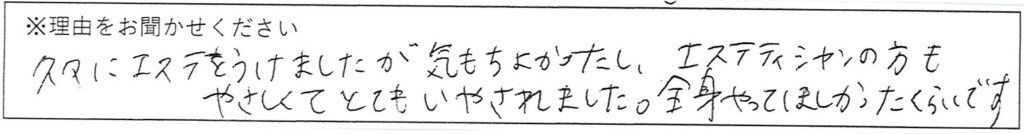 ※理由をお聞かせください
久々にエステをうけましたが気もちよかったし、エステティシャンの方も
やさしくてとてもいやされました。全身やってほしかったくらいです